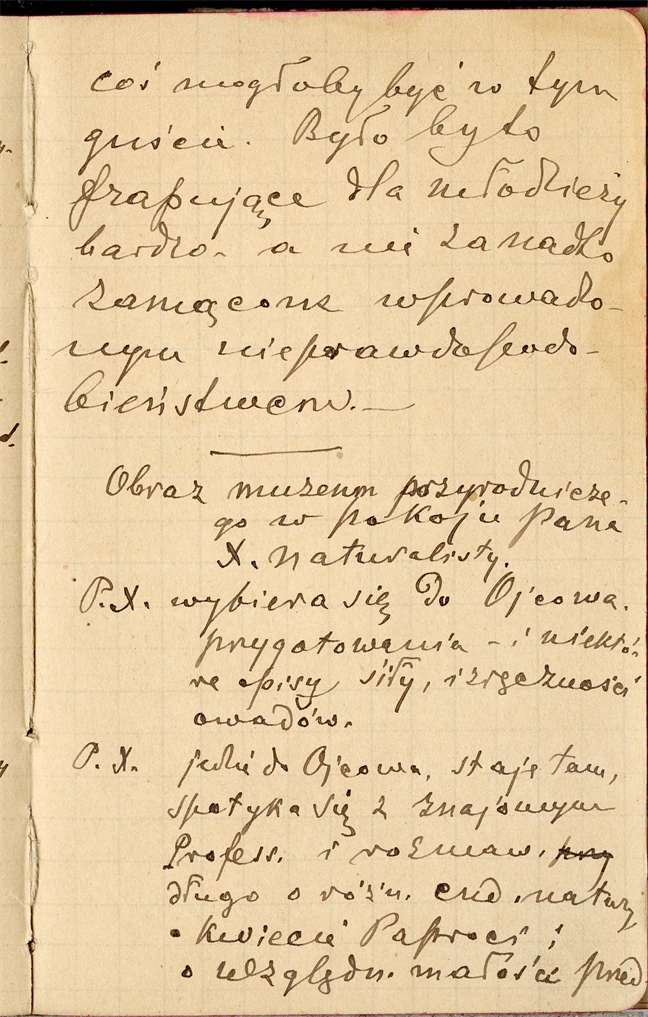 coś mogłoby być w tym
guście. Było by to
frapujące dla młodzieży
bardzo - a nie zanadto
zamącone wprowadzo-
nym nieprawdopodo-
bieństwem. —
Obraz muzeum przyrodnicze-
go w pokoju Pana
X. naturalisty.
P.X. wybiera się do Ojcowa.
przygotowania - i niektó-
re opisy siły, i zręczności
owadów.
P. X. jedzie do Ojcowa, staje tam,
spotyka się z znajomym
Profess. i rozmaw. przy
długo o różn. cud. natury
o kwiecie Paproci i
o względn. małości przed